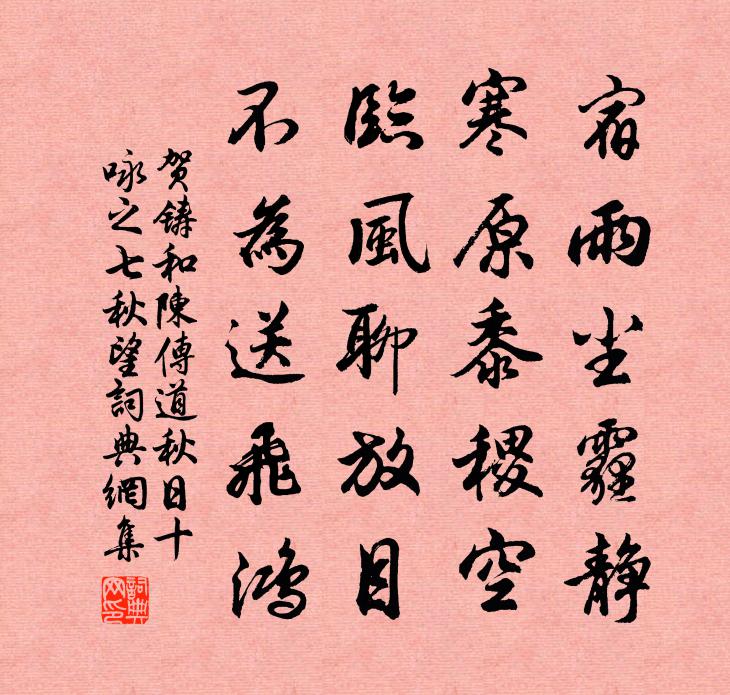 宿雨尘霾静
寒原黍稷空
臨風聊放目
不為送飛鴻
賀鑄和陳傳道秋日十
咏之七秋望詞典網集
詞典网印